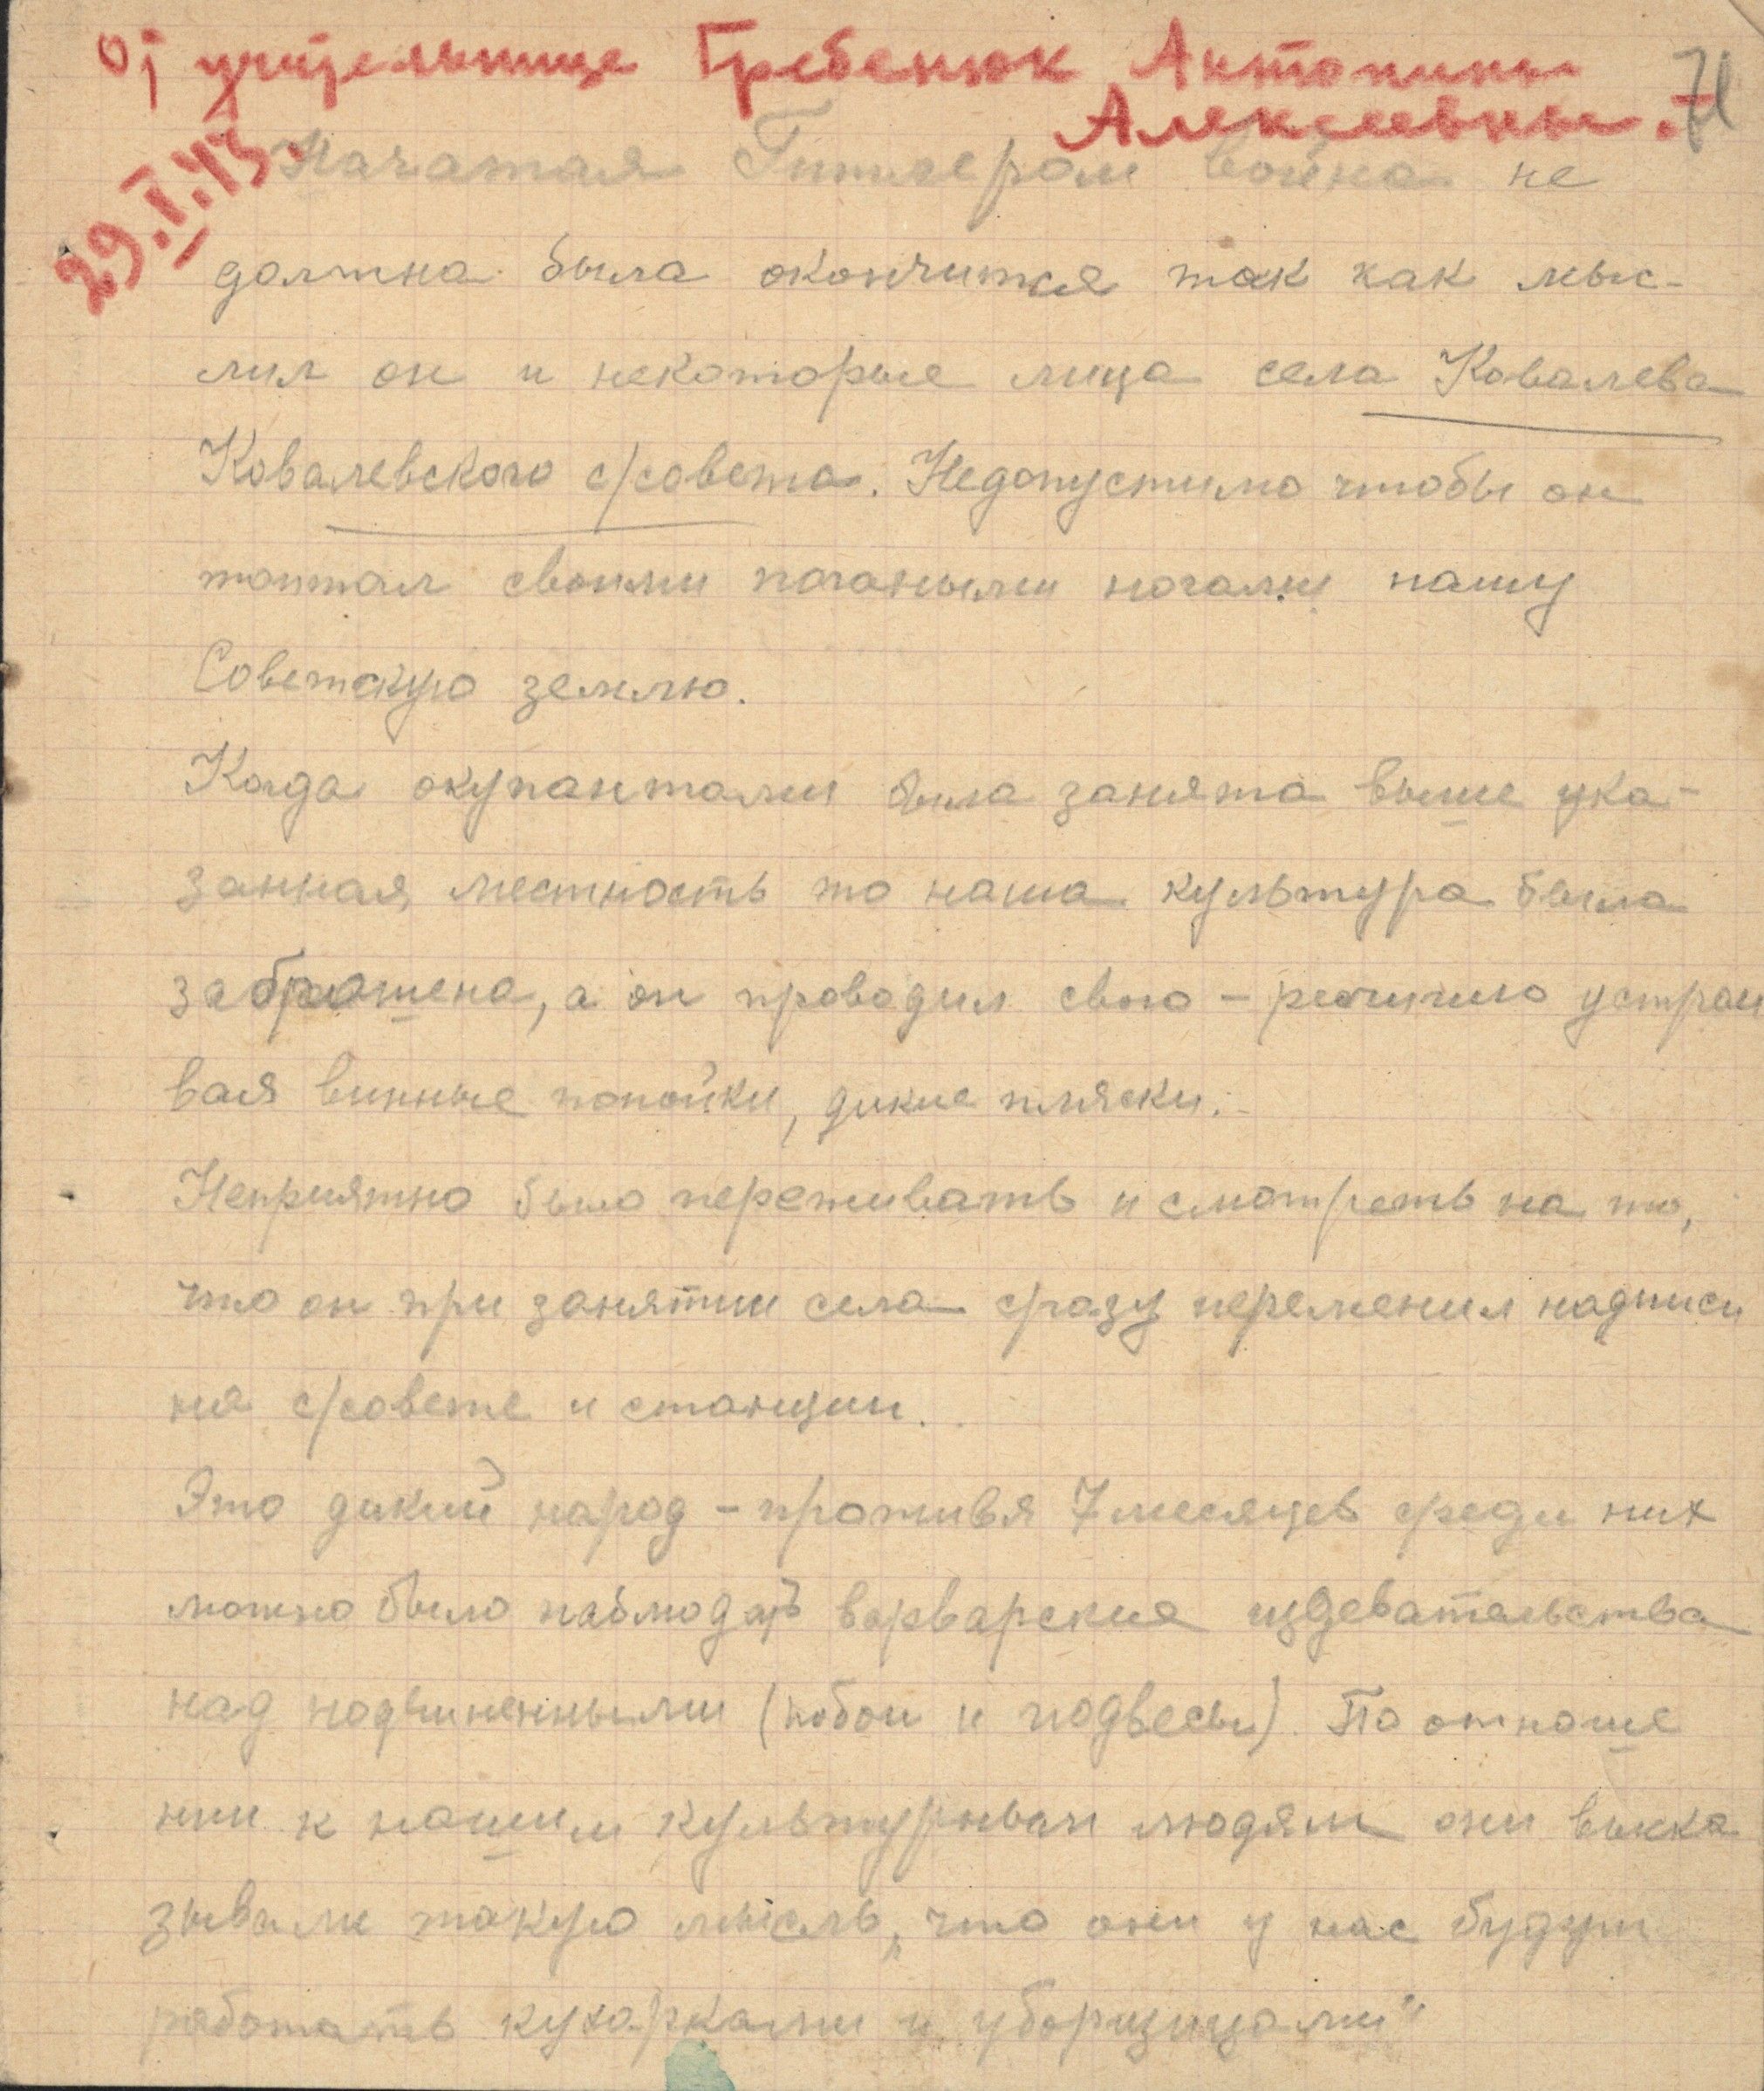 От учительнице Гребенюк Антонины
Алексеевны.
71
29.I.43.
Начатая Гитлером война не
должна была окончится так как мыс-
лил он и некоторые лица села Ковалева
Ковалевского с/совета. Недопустимо чтобы он
топтал своими погаными ногами нашу
Советскую землю.
Когда окупантами была занята выше ука-
занная местность то наша культура была
забрашена, а он проводил свою – устраи
вая винные попойки, дикие пляски.
Неприятно было переживать и смотреть на то,
что он при занятии села сразу переменил надписи
на с/совете и станции.
Это дикий народ – проживя 7 месяцев среди них
можно было наблюдать варварские издевательства
над подчиненными (побои и подвесы). По отноше
нии к нашим культурным людям они выска
зывали такую мысль, „что они у нас будут
работать кухарками и уборщицами“